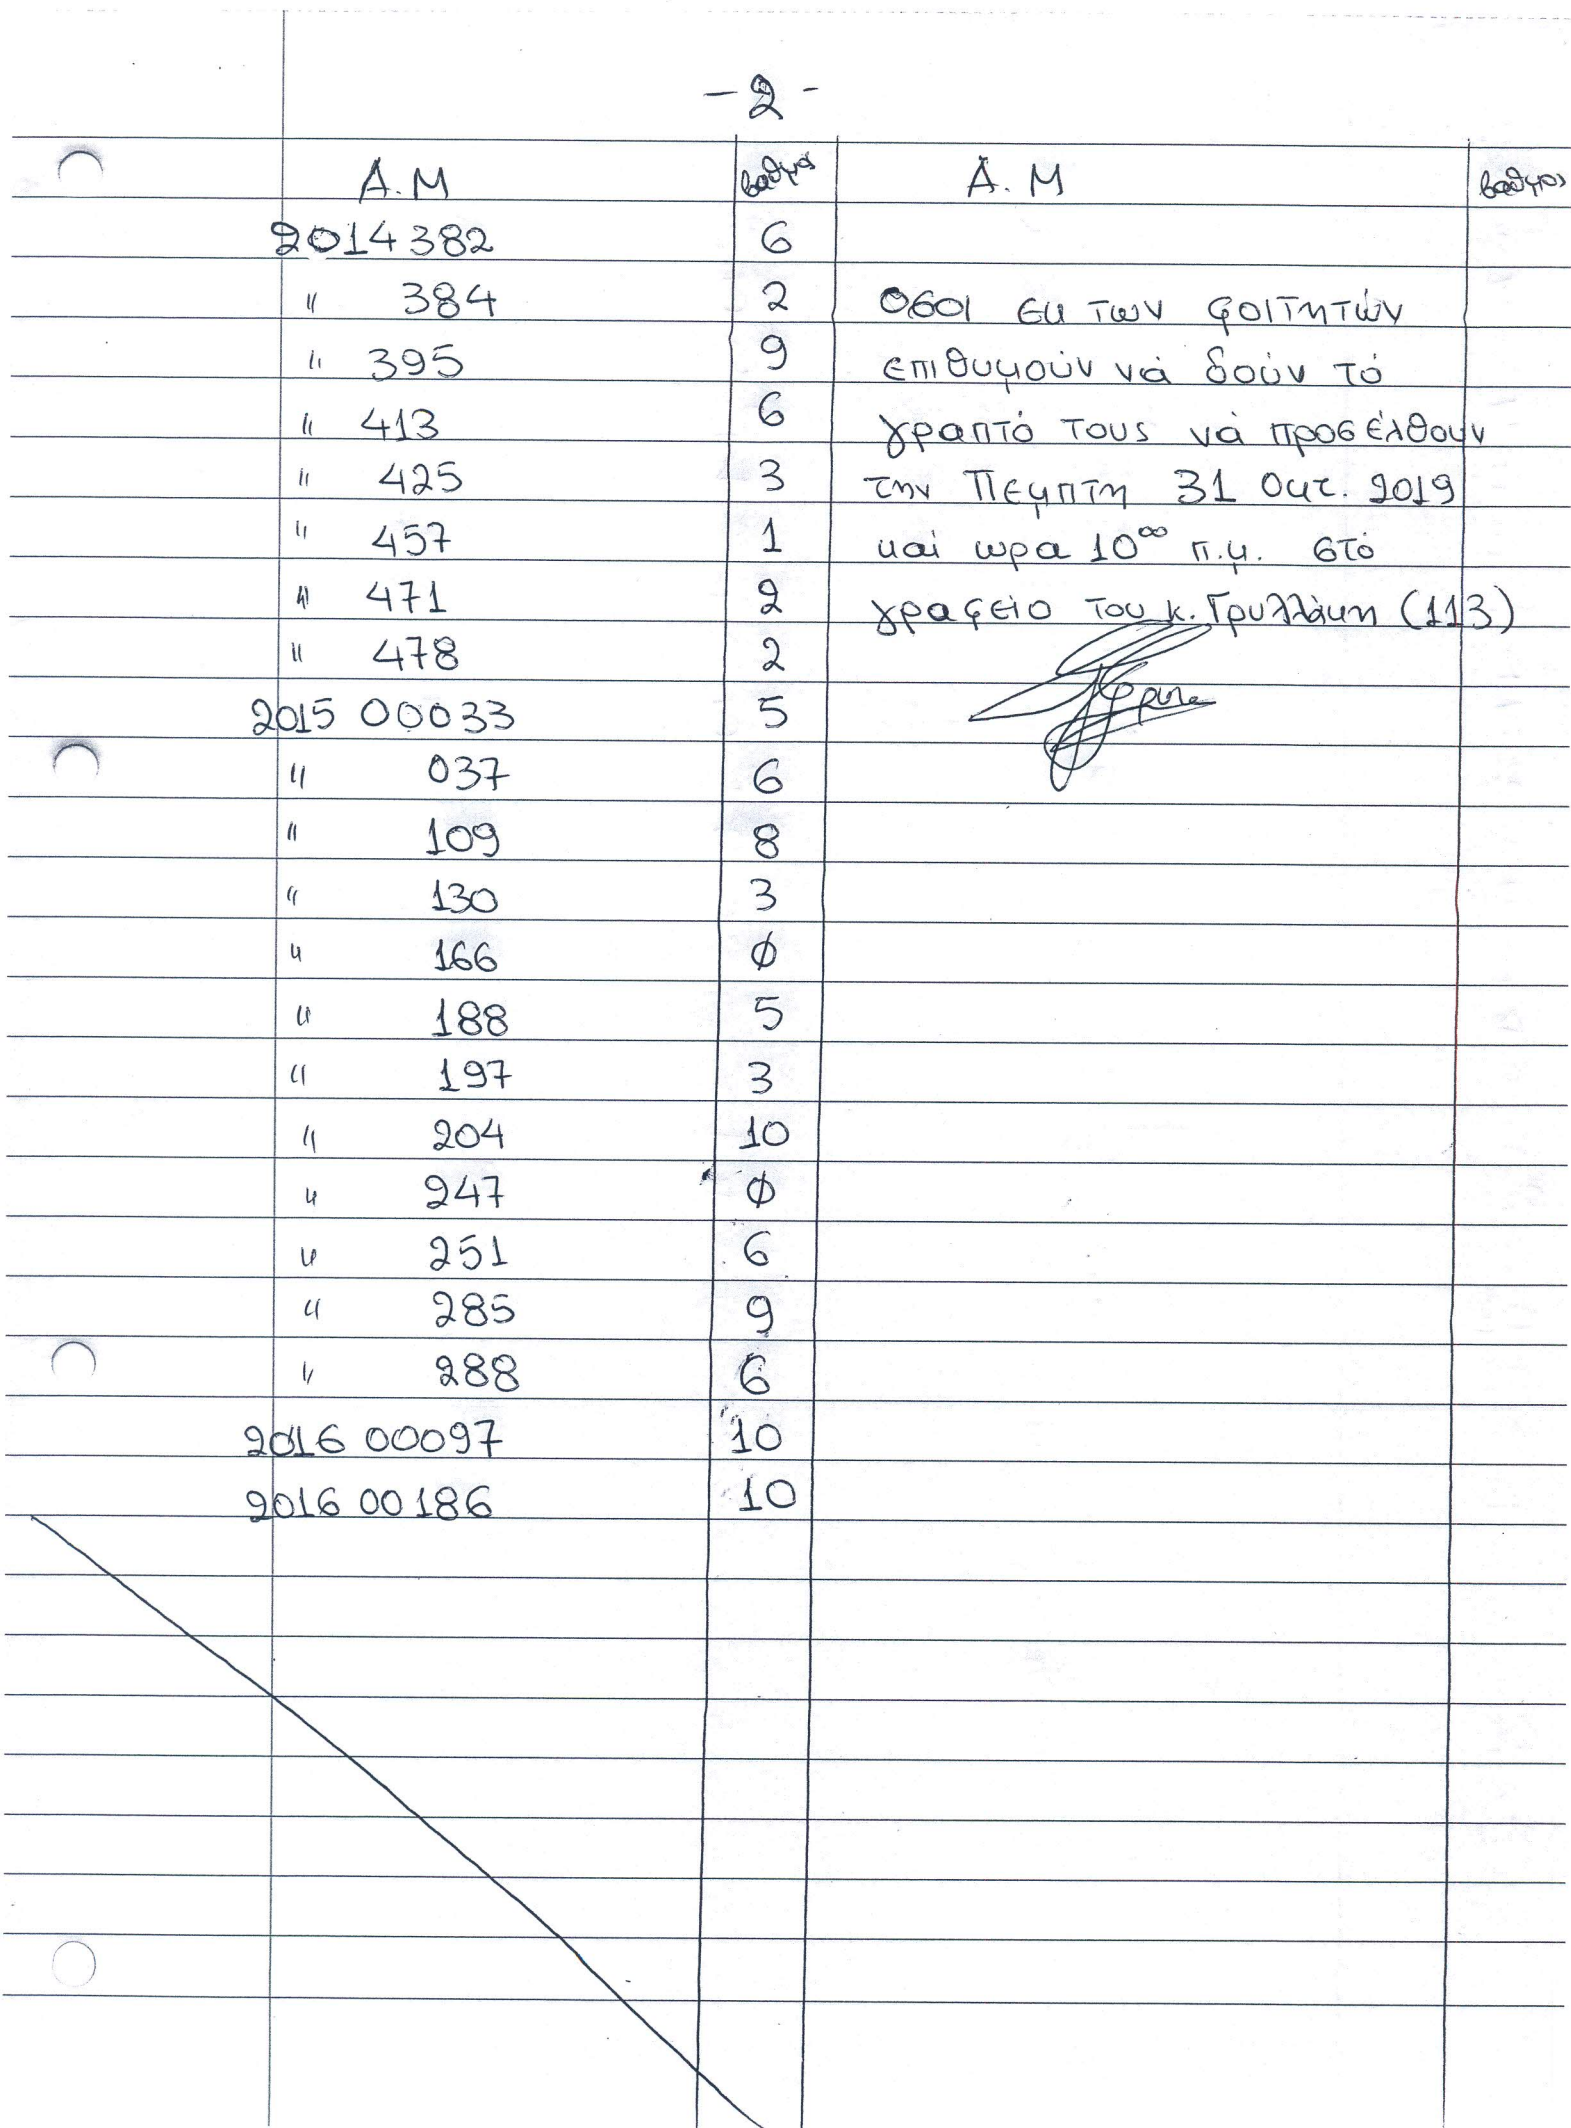 - 2 -
Α.Μ βαθμος Α.Μ βαθμος
2014382 6
" 384 2
" 395 9
" 413 6
" 425 3
" 457 1
" 471 2
" 478 2
2015 00033 5
" 037 6
" 109 8
" 130 3
" 166 Ø
" 188 5
" 197 3
" 204 10
" 247 Ø
" 251 6
" 285 9
" 288 6
2016 00097 10
2016 00186 10
οσοι εκ των φοιτητών
επιθυμούν νά δούν τό
γραπτό τους νά προσέλθουν
την Πεμπτη 31 Οκτ. 2019
καί ωρα 10⁰⁰ π.μ. στό
γραφείο του κ. Γρυλλάκη (113)